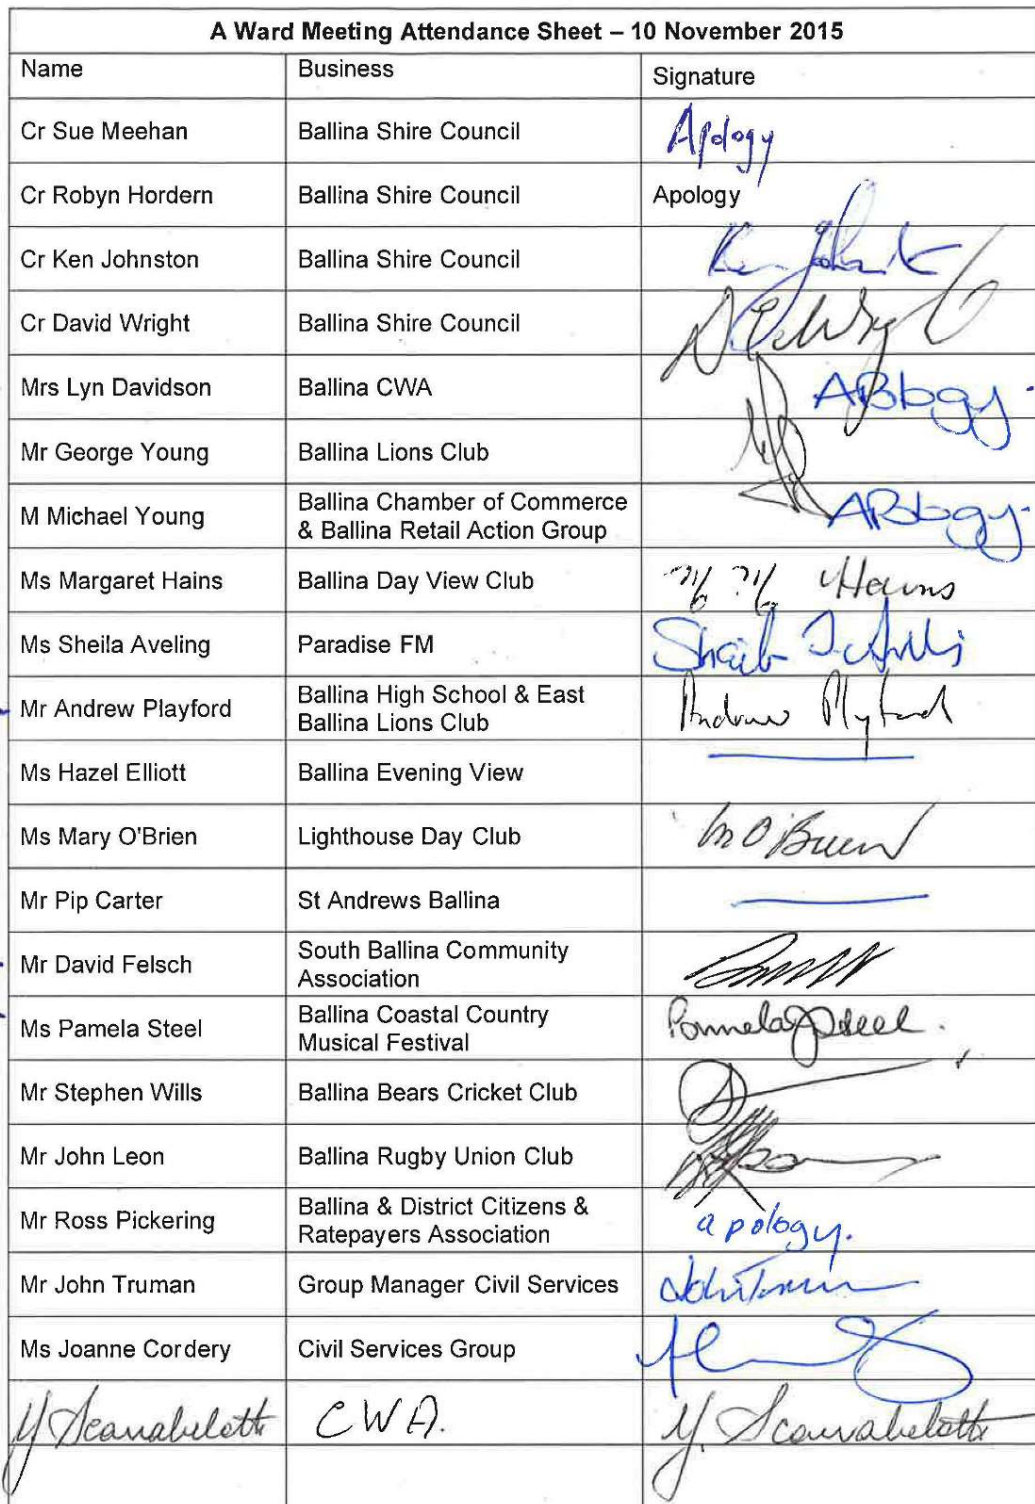 A Ward Meeting Attendance Sheet – 10 November 2015
Name Business Signature
Cr Sue Meehan Ballina Shire Council Apology
Cr Robyn Hordern Ballina Shire Council Apology
Cr Ken Johnston Ballina Shire Council
Cr David Wright Ballina Shire Council
Mrs Lyn Davidson Ballina CWA Apology
Mr George Young Ballina Lions Club
M Michael Young Ballina Chamber of Commerce
& Ballina Retail Action Group Apology
Ms Margaret Hains Ballina Day View Club Hains
Ms Sheila Aveling Paradise FM
Mr Andrew Playford Ballina High School & East
Ballina Lions Club Andrew Playford
Ms Hazel Elliott Ballina Evening View
Ms Mary O'Brien Lighthouse Day Club M O'Brien
Mr Pip Carter St Andrews Ballina
Mr David Felsch South Ballina Community
Association
Ms Pamela Steel Ballina Coastal Country
Musical Festival Pamela J Steel.
Mr Stephen Wills Ballina Bears Cricket Club
Mr John Leon Ballina Rugby Union Club
Mr Ross Pickering Ballina & District Citizens &
Ratepayers Association apology.
Mr John Truman Group Manager Civil Services John Truman
Ms Joanne Cordery Civil Services Group
CWA.